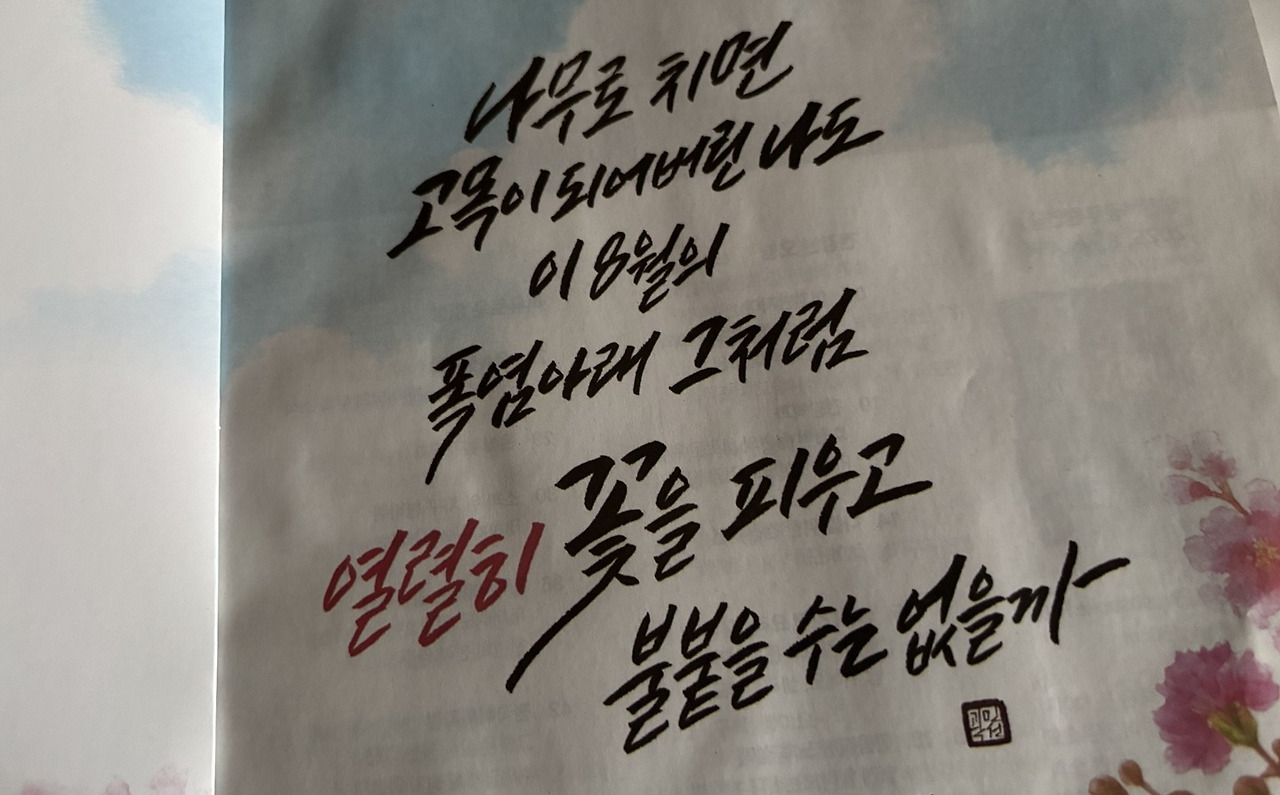 나무로 치면
고목이 되어버린 나도
이 8월의
폭염아래 그처럼
열렬히 꽃을 피우고
불붙을 수는 없을까